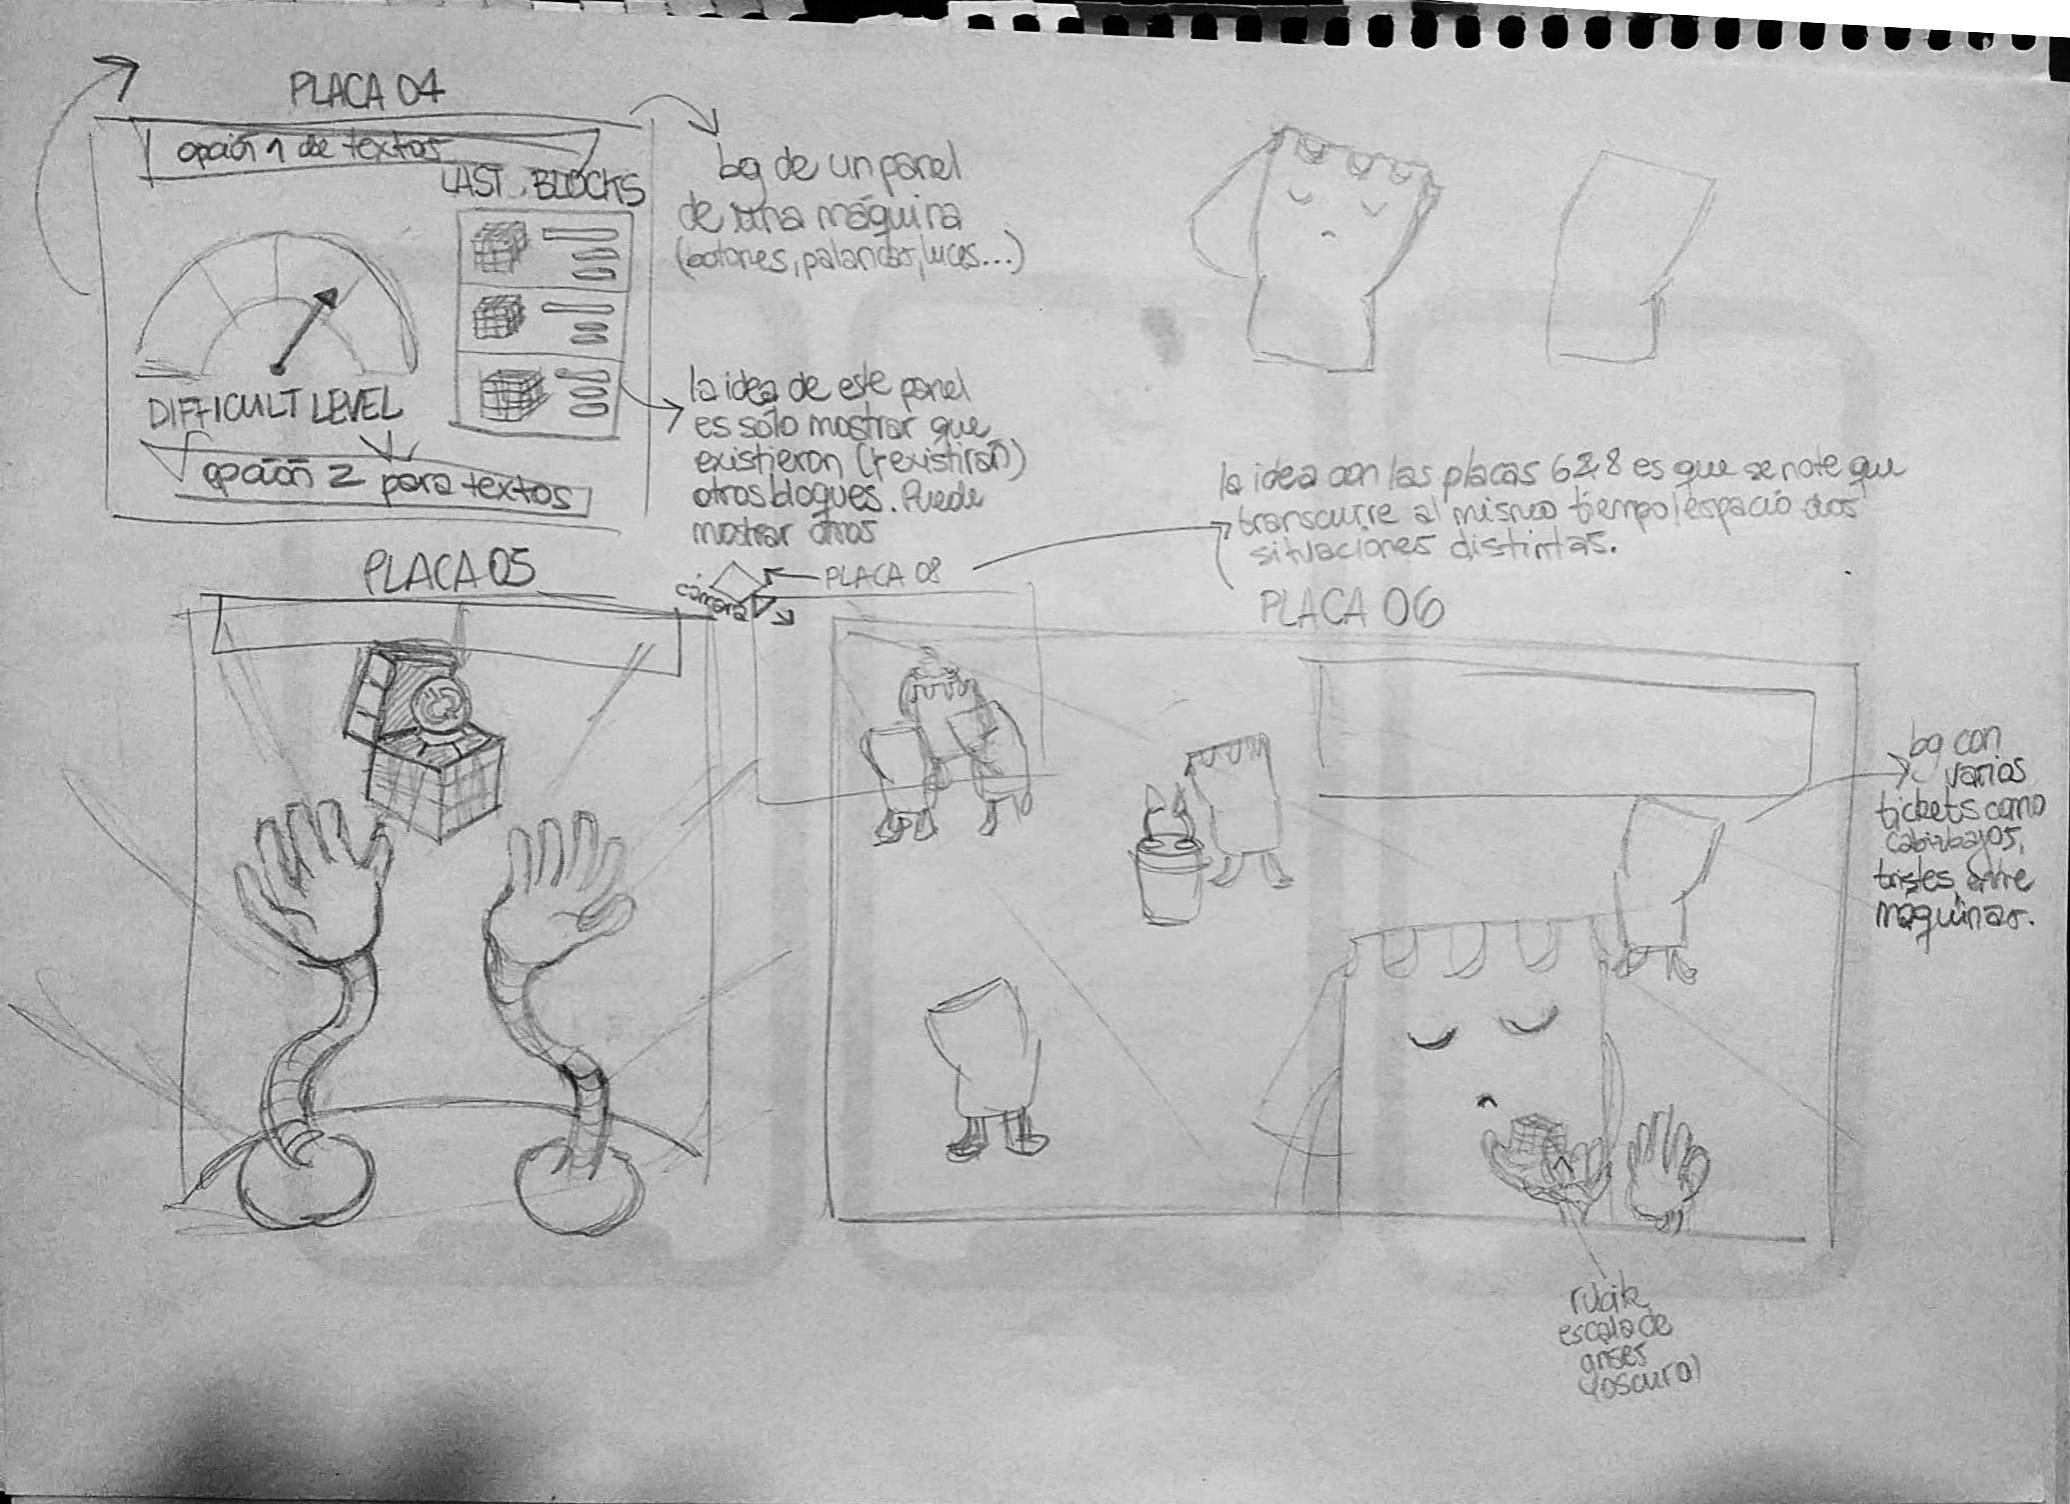 PLACA 04
opción 1 de textos
LAST BLOCKS
DIFFICULT LEVEL
opción 2 para textos
bg de un panel
de una máquina
(botones, palancas, luces...)
la idea de este panel
es sólo mostrar que
existieron (y existirán)
otros bloques. Puede
mostrar otros
PLACA 05
cámara
PLACA 08
la idea con las placas 6&8 es que se note que
transcurre al mismo tiempo/espacio dos
situaciones distintas.
PLACA 06
bg con
varios
tickets como
cabizbajos,
tristes, entre
máquinas.
rubik
escala de
grises
(oscura)